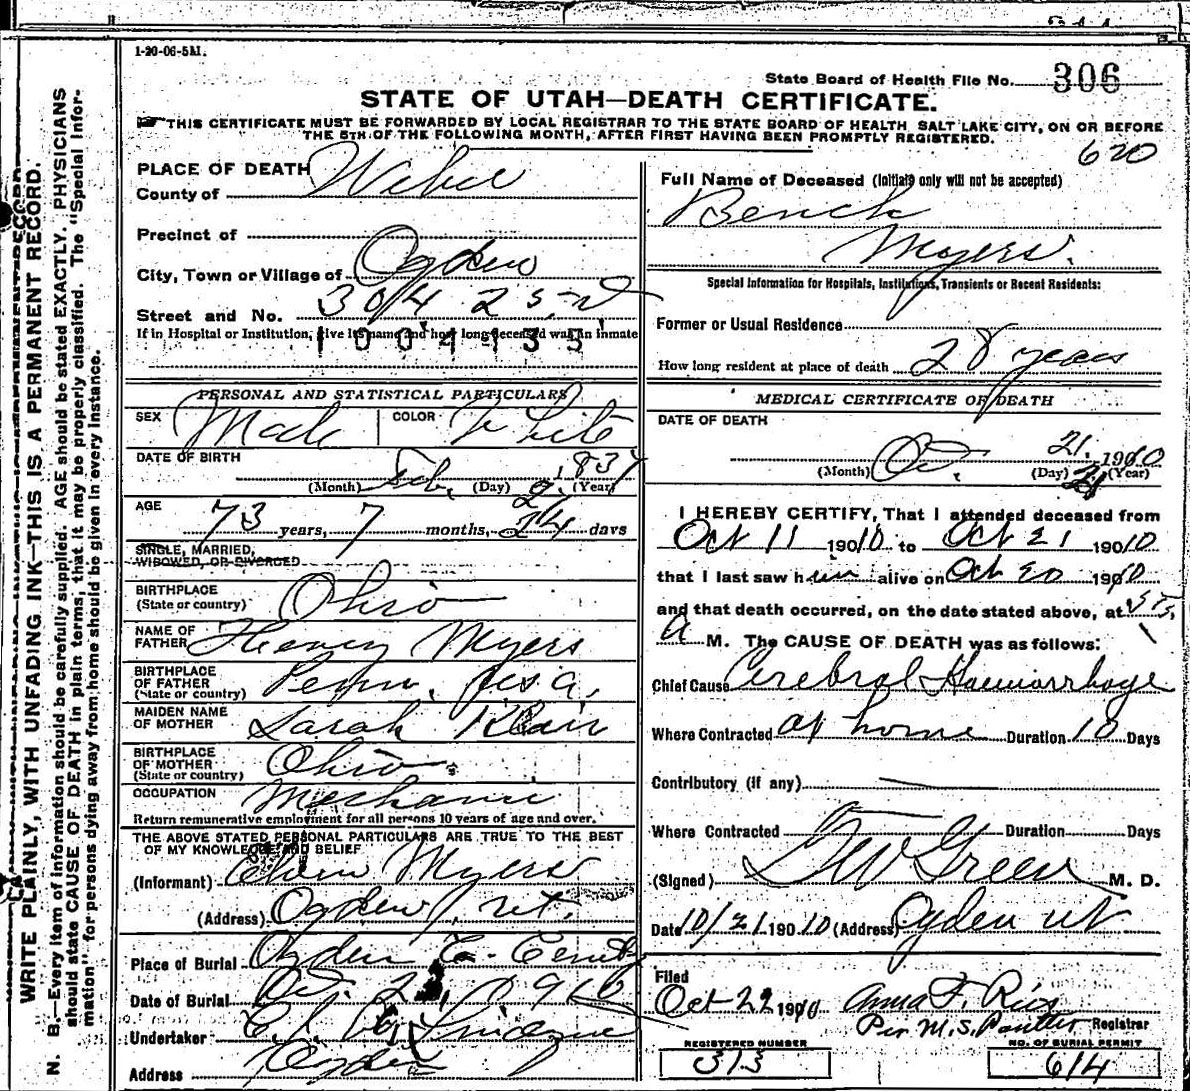 1-20-06-5M.
State Board of Health File No. 306
STATE OF UTAH—DEATH CERTIFICATE.
THIS CERTIFICATE MUST BE FORWARDED BY LOCAL REGISTRAR TO THE STATE BOARD OF HEALTH, SALT LAKE CITY, ON OR BEFORE
THE 5TH OF THE FOLLOWING MONTH, AFTER FIRST HAVING BEEN PROMPTLY REGISTERED.
620
WRITE PLAINLY, WITH UNFADING INK—THIS IS A PERMANENT RECORD.
N. B.—Every item of information should be carefully supplied. AGE should be stated EXACTLY. PHYSICIANS
should state CAUSE OF DEATH in plain terms, that it may be properly classified. The "Special Infor-
mation" for persons dying away from home should be given in every instance.
PLACE OF DEATH
County of Weber
Precinct of
City, Town or Village of Ogden
Street and No. 3014 2
If in Hospital or Institution, give its name and how long deceased was an inmate
1004135
PERSONAL AND STATISTICAL PARTICULARS
SEX Male COLOR White
DATE OF BIRTH
Feb. 1837
(Month) (Day) (Year)
AGE 73 years, 7 months, 24 days
SINGLE, MARRIED,
WIDOWED, OR DIVORCED
BIRTHPLACE
(State or country) Ohio
NAME OF
FATHER Henry Myers
BIRTHPLACE
OF FATHER
(State or country) Penn.
MAIDEN NAME
OF MOTHER Sarah Klair
BIRTHPLACE
OF MOTHER
(State or country) Ohio.
OCCUPATION Mechanic
Return remunerative employment for all persons 10 years of age and over.
THE ABOVE STATED PERSONAL PARTICULARS ARE TRUE TO THE BEST
OF MY KNOWLEDGE AND BELIEF
(Informant) Myers
(Address) Ogden, Ut.
Place of Burial Ogden
Date of Burial
Undertaker
Address Ogden
Full Name of Deceased (Initials only will not be accepted)
Bench
Myers.
Special Information for Hospitals, Institutions, Transients or Recent Residents:
Former or Usual Residence
How long resident at place of death 28 years
MEDICAL CERTIFICATE OF DEATH
DATE OF DEATH
Oct. 21. 1910
(Month) (Day) (Year)
21
I HEREBY CERTIFY, That I attended deceased from
Oct 11 1910 to Oct 21 1910
that I last saw him alive on Oct 20 1910
and that death occurred, on the date stated above, at
A M. The CAUSE OF DEATH was as follows:
Chief Cause Cerebral Haemorrhage
Where Contracted at home Duration 10 Days
Contributory (if any)
Where Contracted Duration Days
(Signed) Green M. D.
Date 10/21 1910 (Address) Ogden Ut
Filed
Oct 22 1910 Anna F. Rios
Per M. S. Pantter Registrar
REGISTERED NUMBER
313
NO. OF BURIAL PERMIT
614